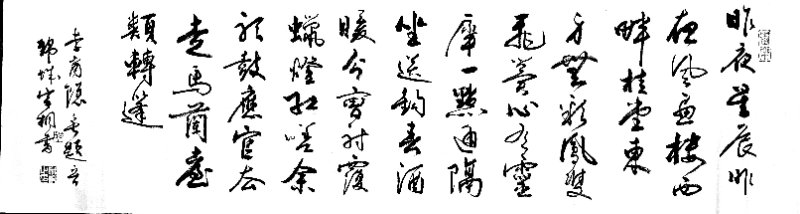 昨夜星辰昨
夜風画樓西
畔桂堂東
身無彩鳳雙
飛翼心有靈
犀一點通隔
坐送鈎春酒
暖分曹射覆
蠟燈紅嗟余
聽鼓應官去
走馬蘭臺
類轉蓬
李商隱無題
書